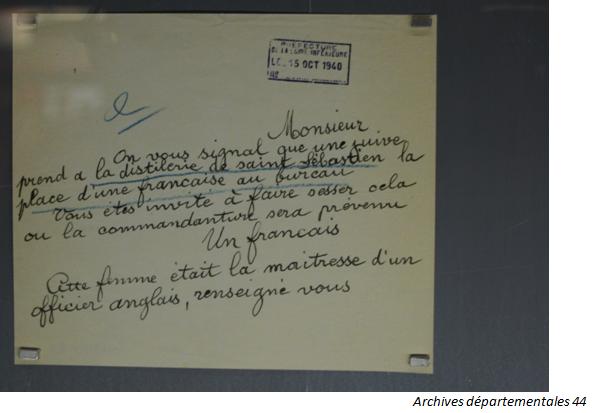 PREFECTURE
DE LA LOIRE INFERIEURE
LE 15 OCT 1940
Monsieur
On vous signal que une juive
prend a la distilerie de saint Sébastien la
place d'une francaise au bureau
Vous êtes invité à faire cesser cela
ou la commandanture sera prévenu
Un francais
Cette femme était la maitresse d'un
officier anglais, renseigné vous
Archives départementales 44